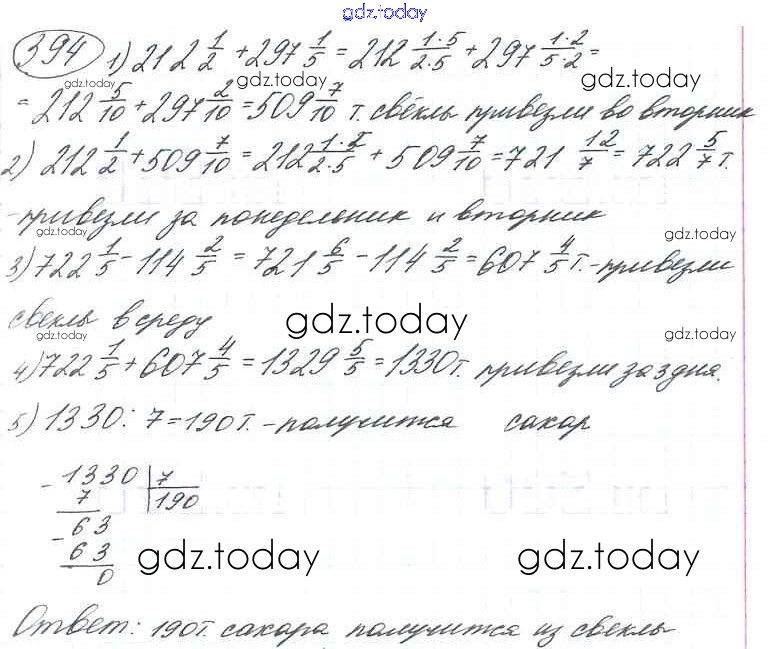 gdz.today
394 1) 212 1/2 + 297 1/5 = 212 1·5/2·5 + 297 1·2/5·2 =
gdz.today gdz.today
= 212 5/10 + 297 2/10 = 509 7/10 т. свёклы привезли во вторник
gdz.today
2) 212 1/2 + 509 7/10 = 212 1·5/2·5 + 509 7/10 = 721 12/7 = 722 5/7 т.
- привезли за понедельник и вторник
gdz.today gdz.today
3) 722 1/5 - 114 2/5 = 721 6/5 - 114 2/5 = 607 4/5 т. - привезли
свеклы в среду
gdz.today gdz.today gdz.today
4) 722 1/5 + 607 4/5 = 1329 5/5 = 1330 т. привезли за 3 дня.
5) 1330 : 7 = 190 т. - получится сахар
- 1330 | 7
7 | 190
- 63
63
0
gdz.today gdz.today
Ответ: 190 т. сахара получится из свеклы